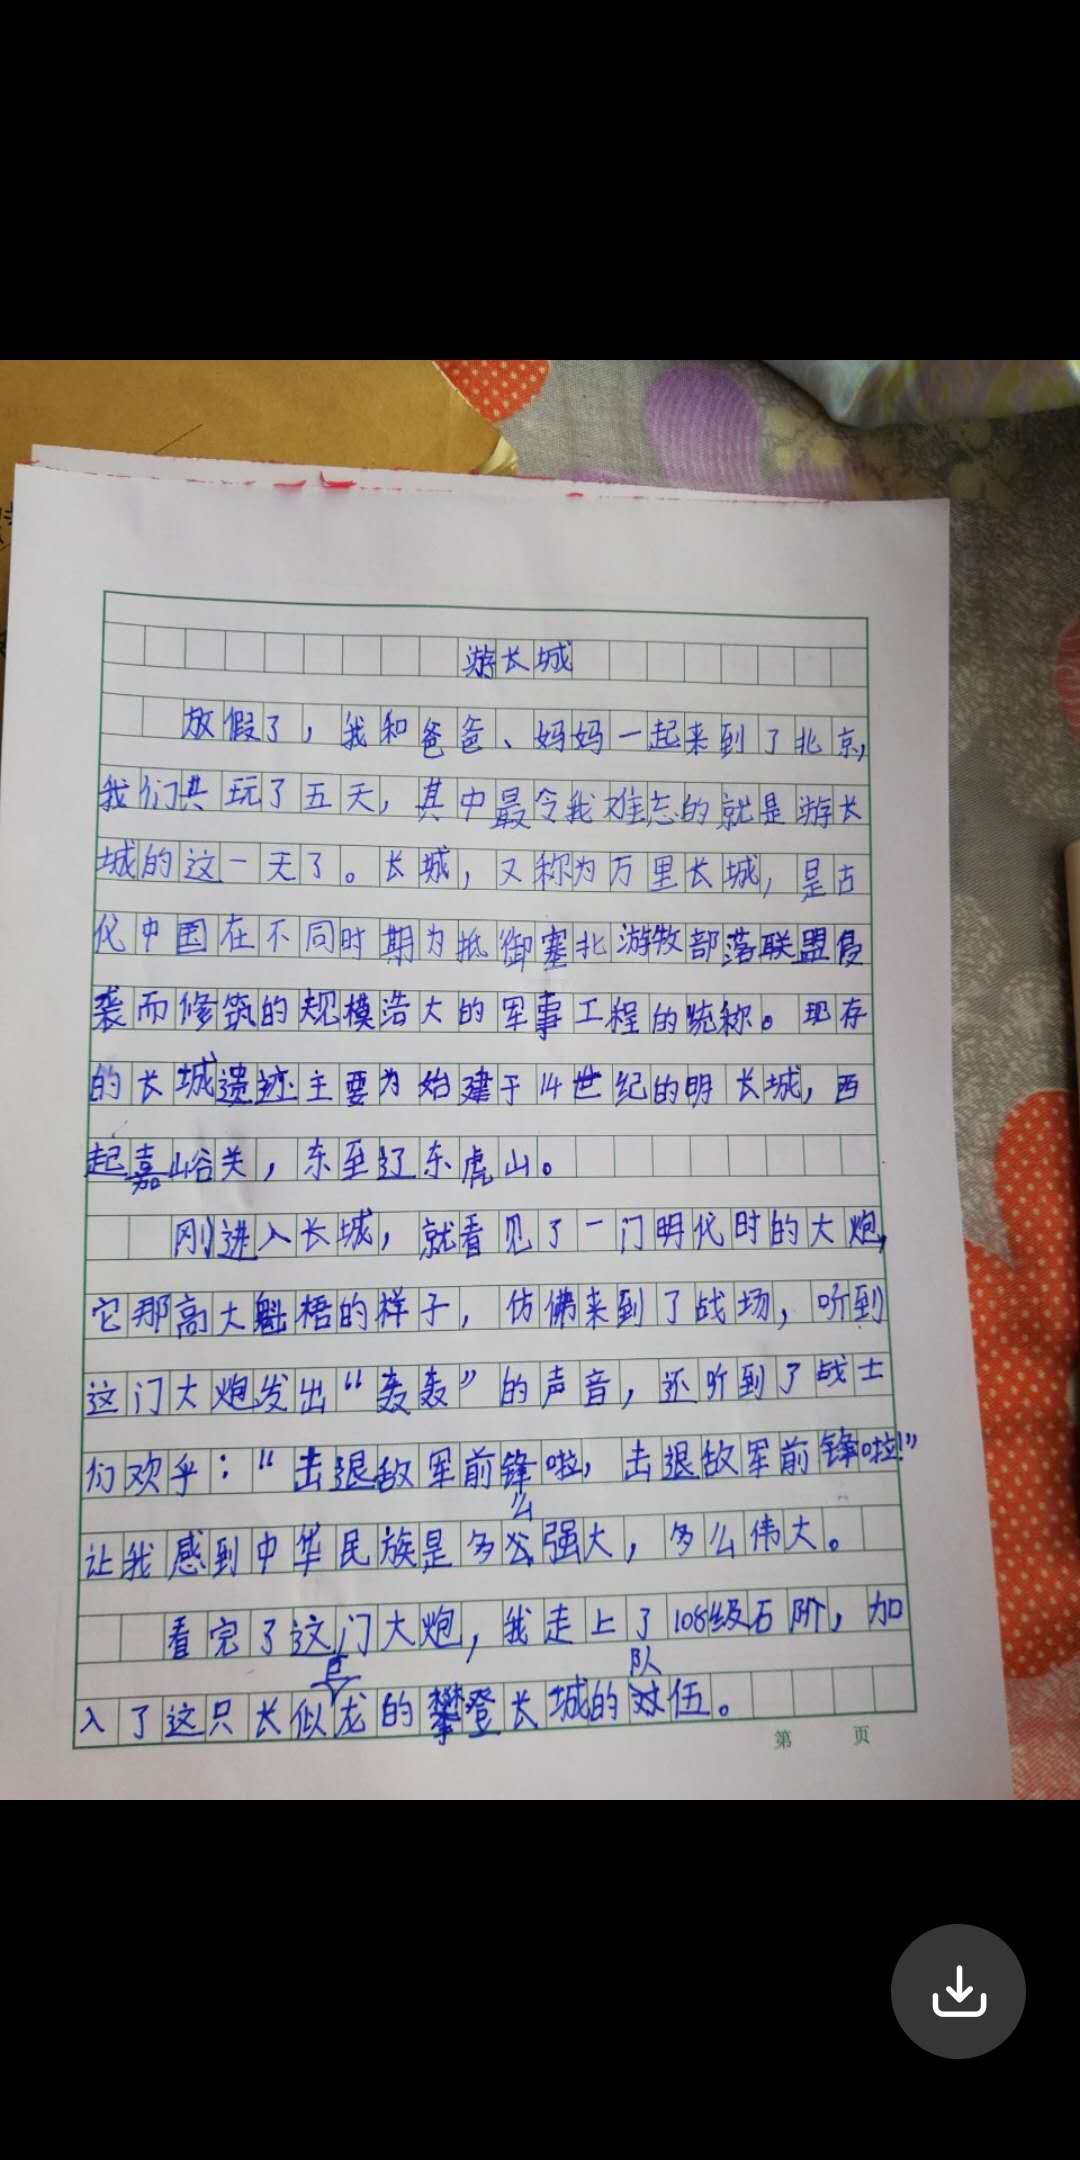 游长城
放假了，我和爸爸、妈妈一起来到了北京，
我们共玩了五天，其中最令我难忘的就是游长
城的这一天了。长城，又称为万里长城，是古
代中国在不同时期为抵御塞北游牧部落联盟侵
袭而修筑的规模浩大的军事工程的统称。现存
的长城遗迹主要为始建于14世纪的明长城，西
起嘉峪关，东至辽东虎山。
刚进入长城，就看见了一门明代时的大炮，
它那高大魁梧的样子，仿佛来到了战场，听到
这门大炮发出“轰轰”的声音，还听到了战士
们欢乎：“击退敌军前锋啦，击退敌军前锋啦！”
让我感到中华民族是多么强大，多么伟大。
看完了这门大炮，我走上了108级石阶，加
入了这只长似巨龙的攀登长城的队伍。
第 页